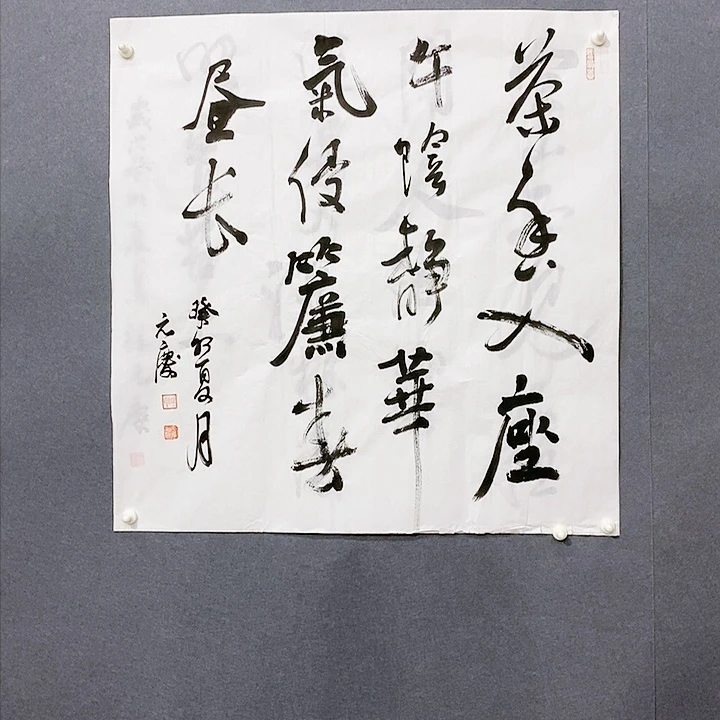 茶香入座
午陰靜華
氣侵簾春
昼长
癸卯夏月
元慶